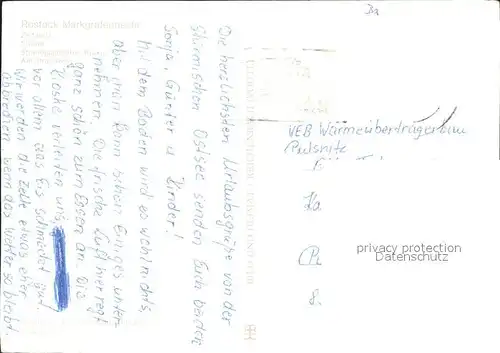 Rostock-Markgrafenheide
Zeltplatz
Die herzlichsten Urlaubsgrüße von der
stürmischen Ostsee senden Euch beiden
Sonja, Günter u. Kinder!
Mit dem Baden wird es wohl nichts,
aber man kann schon einiges unter-
nehmen. Die frische Luft hier regt
ganz schön zum Essen an. Die
Kioske verleiten uns,
vor allem das Eis schmeckt gut.
Wir werden die Zelte etwas eher
abbrechen, wenn das Wetter so bleibt.
VEB Wärmeübertragerbau
Pulsnitz
privacy protection
Datenschutz